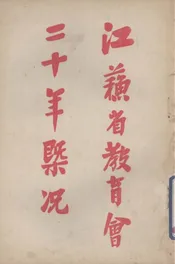 江蘇省教育會
二十年槩況